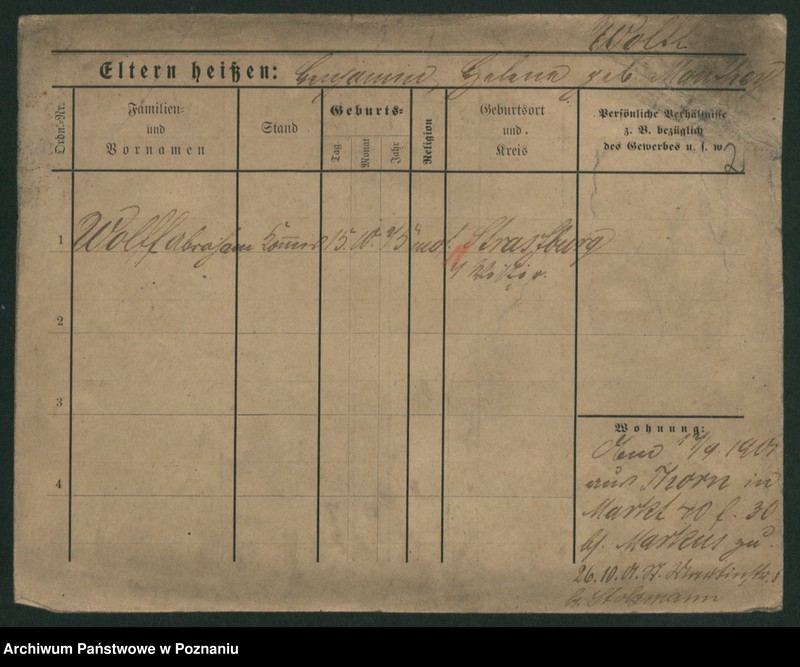 Wolff
Eltern heißen: Benjamin, Helene geb.
Ordn.-Nr.
Familien- und Vornamen
Stand
Geburts-
Tag
Monat
Jahr
Religion
Geburtsort und Kreis
Persönliche Verhältnisse z. B. bezüglich des Gewerbes u. s. w.
2
1 Wolff Abraham 15. 10. Strassburg
2
3
4
Wohnung:
1901
aus Thorn in
Markt 30
Markus zu
26.10.01
Stolzmann
Archiwum Państwowe w Poznaniu